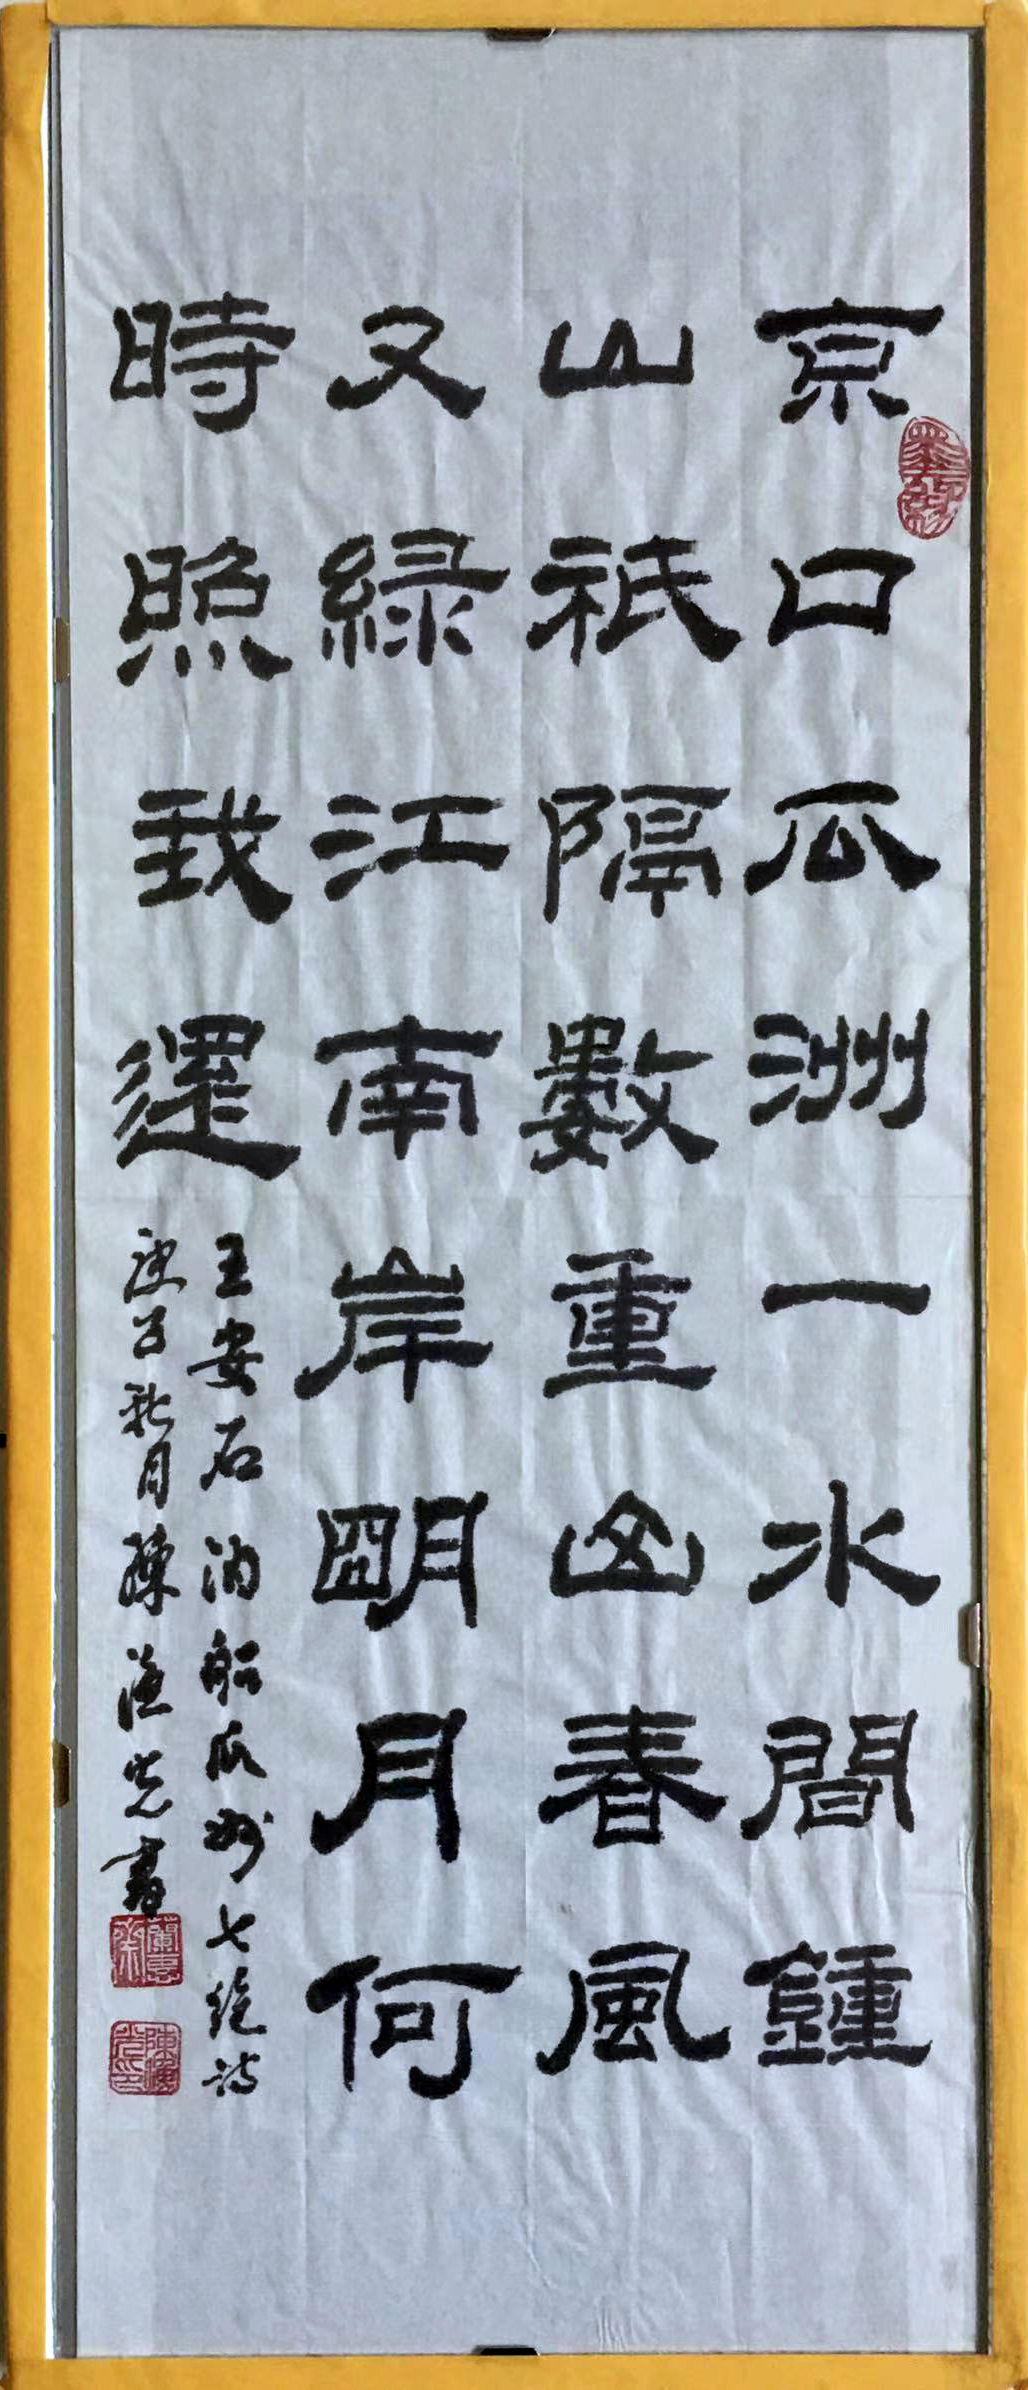 京口瓜洲一水間鍾
山祇隔數重山春風
又綠江南岸明月何
時照我還
王安石泊船瓜州七絕詩
庚子秋月陳漁光書